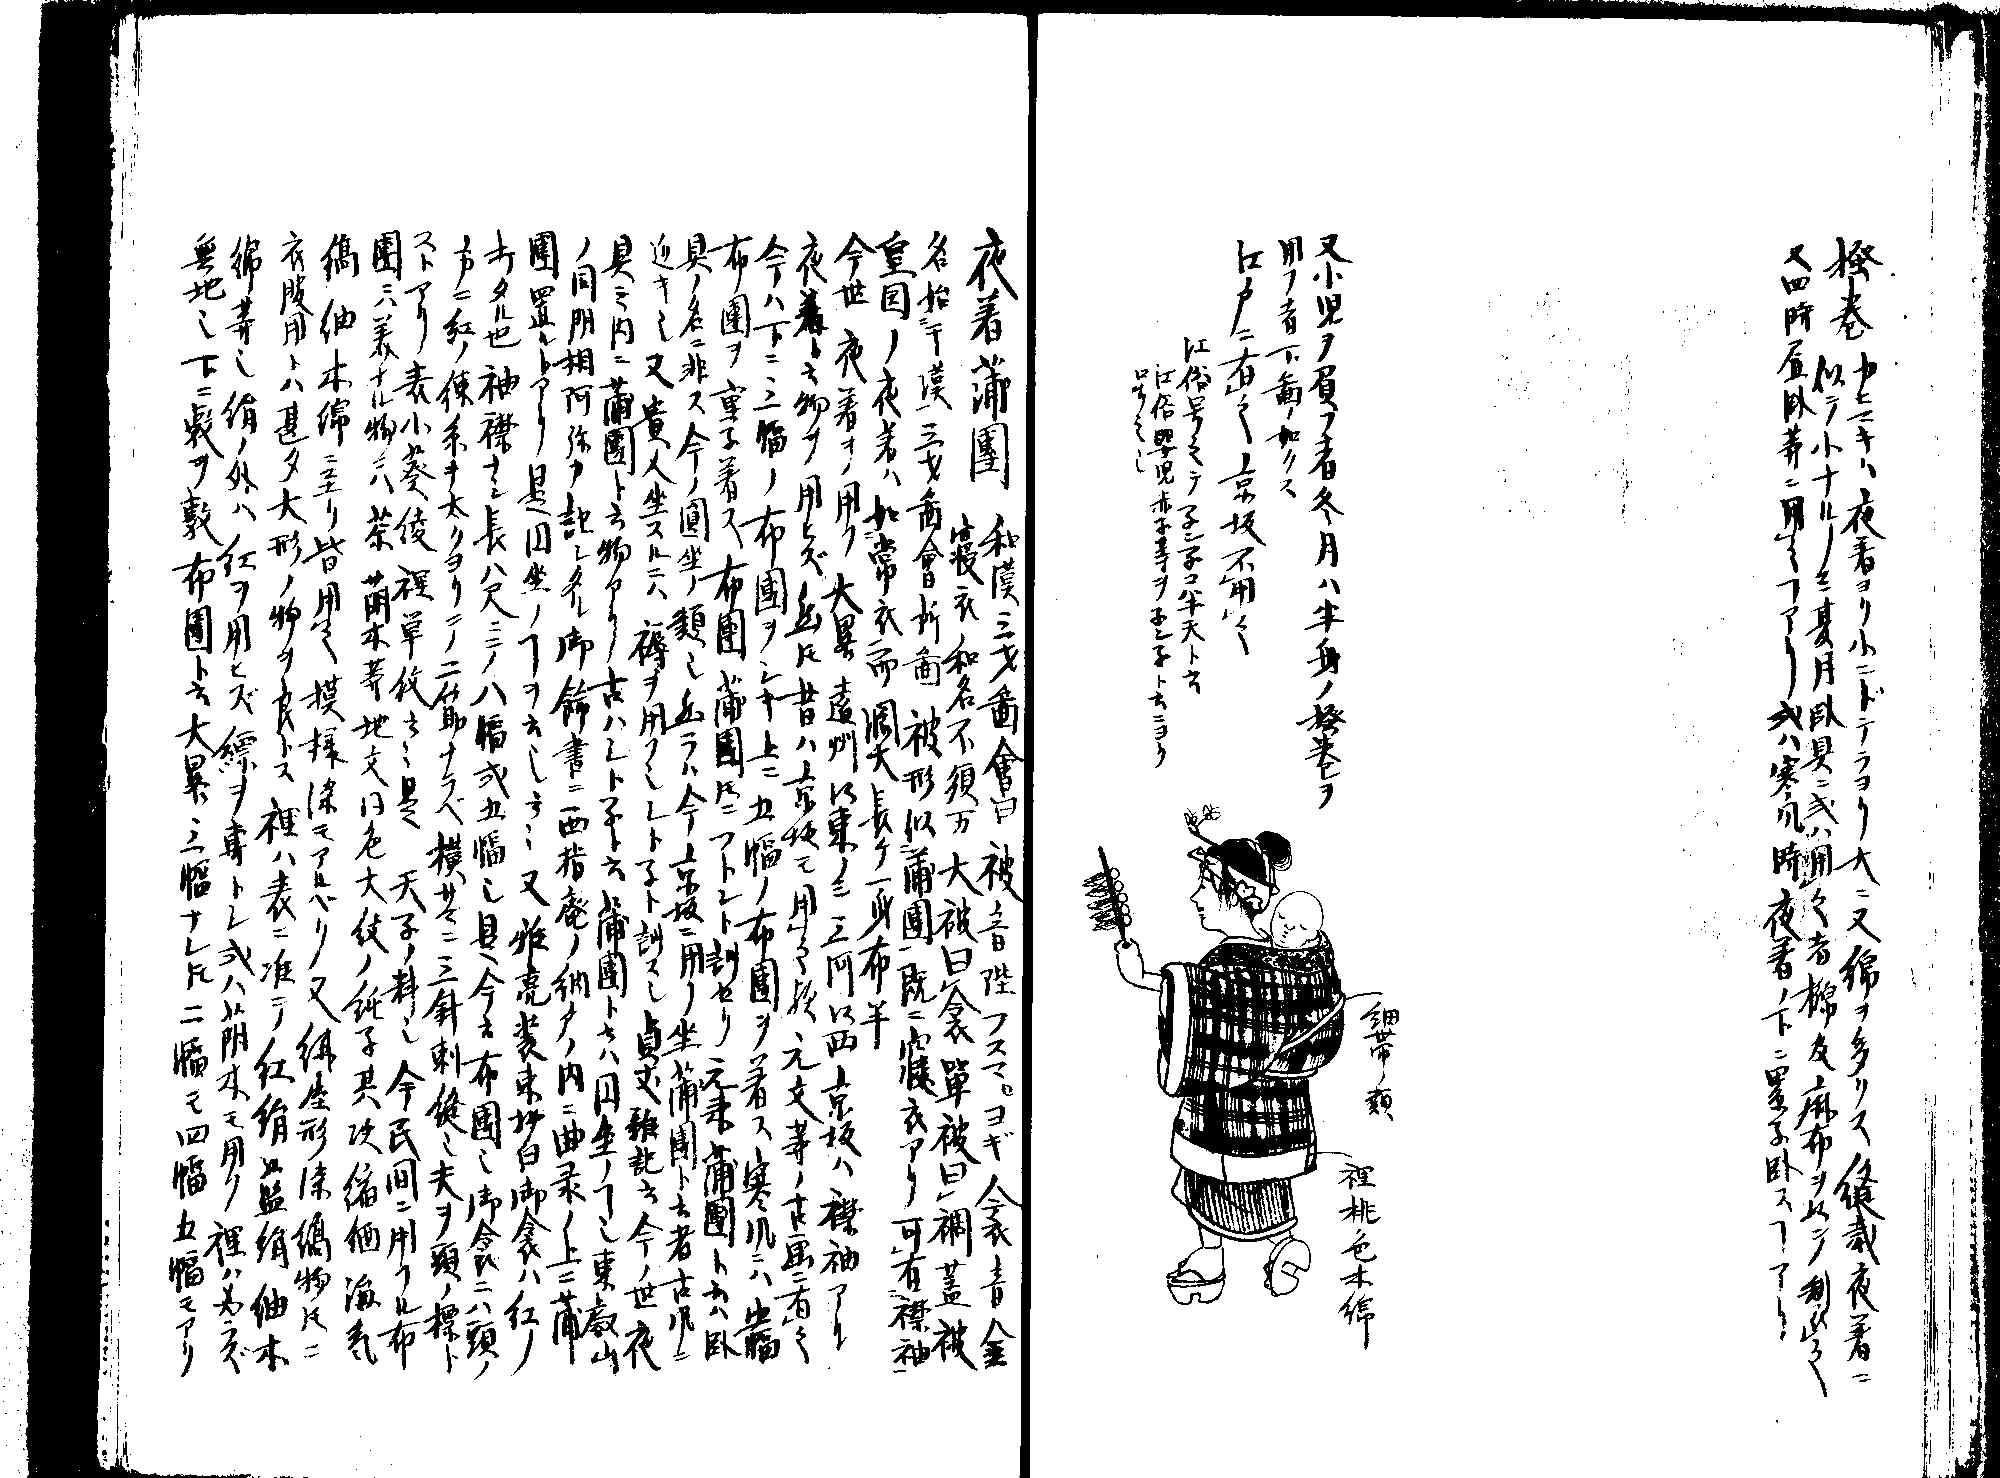 掻巻 カヒマキハ夜着ヨリ小ニドテラヨリ大ニ又綿ヲ多クス 縫裁夜着ニ
似テ小ナルノミ夏月臥具ニ或ハ用之者 綿及麻布ヲ以テ制之
又四時昼臥等ニ用之コアリ 或ハ寒風時夜着ノ下ニ累子臥スコアリ
又小児ヲ負フ者冬月ハ半身ノ掻巻ヲ
用フ者下ノ図ノ如クス
江戸ニ有之 京坂不用之
江俗号之テ子ンネコ半天ト云
江俗嬰児赤子等ヲ子ンネト云ニヨリ
細帯ノ類
裡桃色木綿
夜着蒲団 和漢三才圖會曰 被音陛フスマ。ヨギ 衾音金
寝衣和名不須万 大被曰衾單被曰裯 蓋被
名始于漢 三才圖會所圖 被形似蒲團 既ニ寝衣アリ 可有襟袖
皇国ノ夜着ハ如常衣而濶大長ケ一身布半
今世 夜着ヲ用フ 大畧遠州以東ノミ 三河以西京坂ハ襟袖アル
夜着ト云物ヲ用ヒズ 然トモ昔ハ京坂モ用之歟 元文等ノ古画ニ有之
今ハ下ニ三幅ノ布團ヲシキ上ニ五幅ノ布團ヲ着ス 寒風ニハ五幅
布團ヲ重子着ス 布團蒲團トモニフトント訓セリ 元来蒲團ト云ハ臥
具ノ名ニ非ス 今ノ圓坐ノ類也 然ラハ今京坂ニ用フ坐蒲團ト云者古風ニ
近キ也 又貴人坐スルニハ褥ヲ用フ シトネト訓ス也 貞丈雜記云 今ノ世夜
具之内ニ蒲團ト云物アリ 古ハシトネト云 蒲團ト云ハ円坐ノコ也 東叡山
ノ同朋相阿弥カ記シタル御飾書ニ西指庵ノ納戸ノ内ニ曲录ノ上ニ蒲
團置トアリ 是円坐ノコヲ云也 云々 又雅亮装束抄曰 御衾ハ紅ノ
打タル也 袖襟ナシ 長八尺ニノ八幅或五幅也 是今云布團也 御衾ニハ頭ノ
方ニ紅ノ練糸ヲ太クヨリテノ二筋ナラベ横サマニ三針刺縫也 夫ヲ頭ノ標ト
ストアリ 表小葵綾 裡單紋 云々 是 天子ノ料也 今民間ニ用フル布
團ニハ美ナル物ニハ茶 萌木等地文同色大紋ノ純子 其次縮緬 海氣
縞 紬 木綿ニ至リ皆用之 模様染モアルベリ 又絹座形染縞物トモニ
衣服用トハ甚タ大形ノ物ヲ良トス 裡ハ表ニ准テ紅絹 藍絹 紬 木
綿等也 絹ノ外ハ紅ヲ用ヒズ 縹ヲ専トシ或ハ萌木モ用フ 裡ハ必ラズ
無地也 下ニ敷ヲ敷布團ト云 大畧三幅ナレトモ二幅モ四幅五幅モアリ